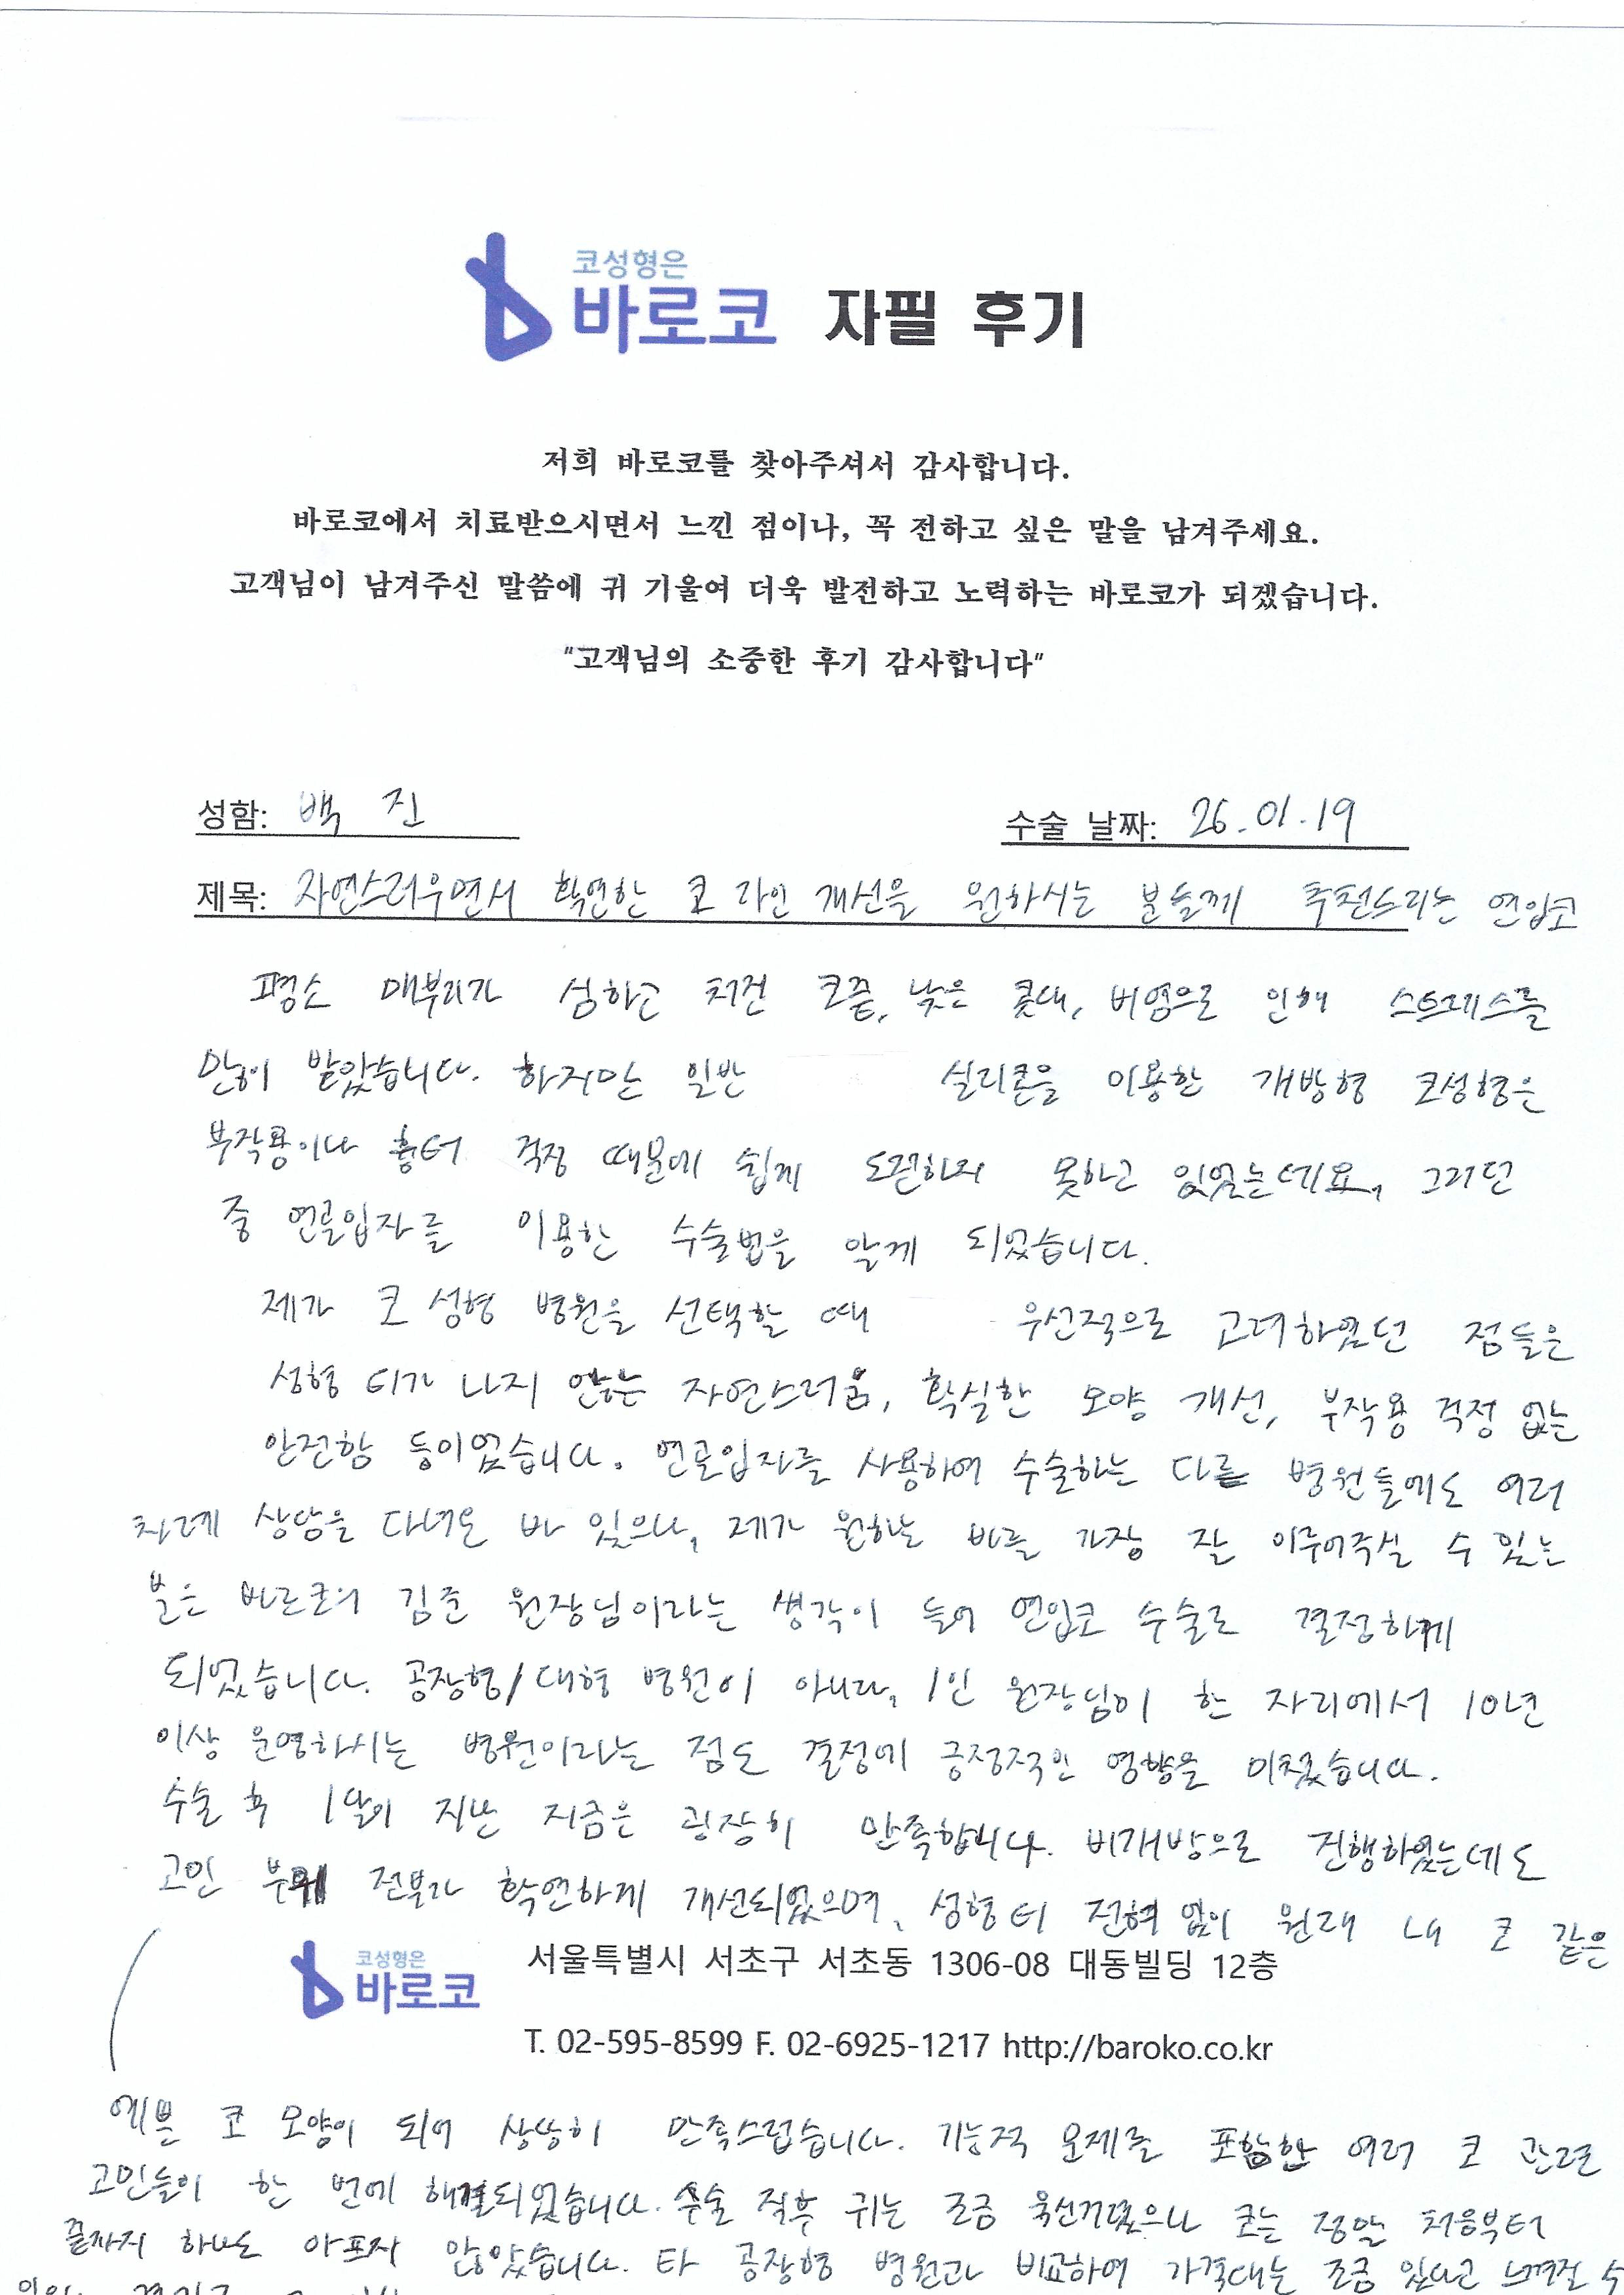 코성형은
바로코 자필 후기
저희 바로코를 찾아주셔서 감사합니다.
바로코에서 치료받으시면서 느낀 점이나, 꼭 전하고 싶은 말을 남겨주세요.
고객님이 남겨주신 말씀에 귀 기울여 더욱 발전하고 노력하는 바로코가 되겠습니다.
"고객님의 소중한 후기 감사합니다"
성함: 백 진 수술 날짜: 26.01.19
제목: 자연스러우면서 확연한 코 라인 개선을 원하시는 분들께 추천드리는 연입코
평소 매부리가 심하고 처진 코끝, 낮은 콧대, 비염으로 인해 스트레스를
많이 받았습니다. 하지만 일반 실리콘을 이용한 개방형 코성형은
부작용이나 흉터 걱정 때문에 쉽게 도전하지 못하고 있었는데요, 그러던
중 연골입자를 이용한 수술법을 알게 되었습니다.
제가 코 성형 병원을 선택할 때 우선적으로 고려하였던 점들은
성형 티가 나지 않는 자연스러움, 확실한 모양 개선, 부작용 걱정 없는
안전함 등이었습니다. 연골입자를 사용하여 수술하는 다른 병원들에도 여러
차례 상담을 다녀온 바 있으나, 제가 원하는 바를 가장 잘 이루어주실 수 있는
분은 바로코의 김준 원장님이라는 생각이 들어 연입코 수술로 결정하게
되었습니다. 공장형/대형 병원이 아니라, 1인 원장님이 한 자리에서 10년
이상 운영하시는 병원이라는 점도 결정에 긍정적인 영향을 미쳤습니다.
수술 후 1달이 지난 지금은 굉장히 만족합니다. 비개방으로 진행하였는데도
고민 부위 전부가 확연하게 개선되었으며, 성형 티 전혀 없이 원래 내 코 같은
코성형은
바로코
서울특별시 서초구 서초동 1306-08 대동빌딩 12층
T. 02-595-8599 F. 02-6925-1217 http://baroko.co.kr
예쁜 코 모양이 되어 상당히 만족스럽습니다. 기능적 문제를 포함한 여러 코 관련
고민들이 한 번에 해결되었습니다. 수술 직후 귀는 조금 욱신거렸으나 코는 정말 처음부터
끝까지 하나도 아프지 않았습니다. 타 공장형 병원과 비교하여 가격대는 조금 있다고 느껴질 수